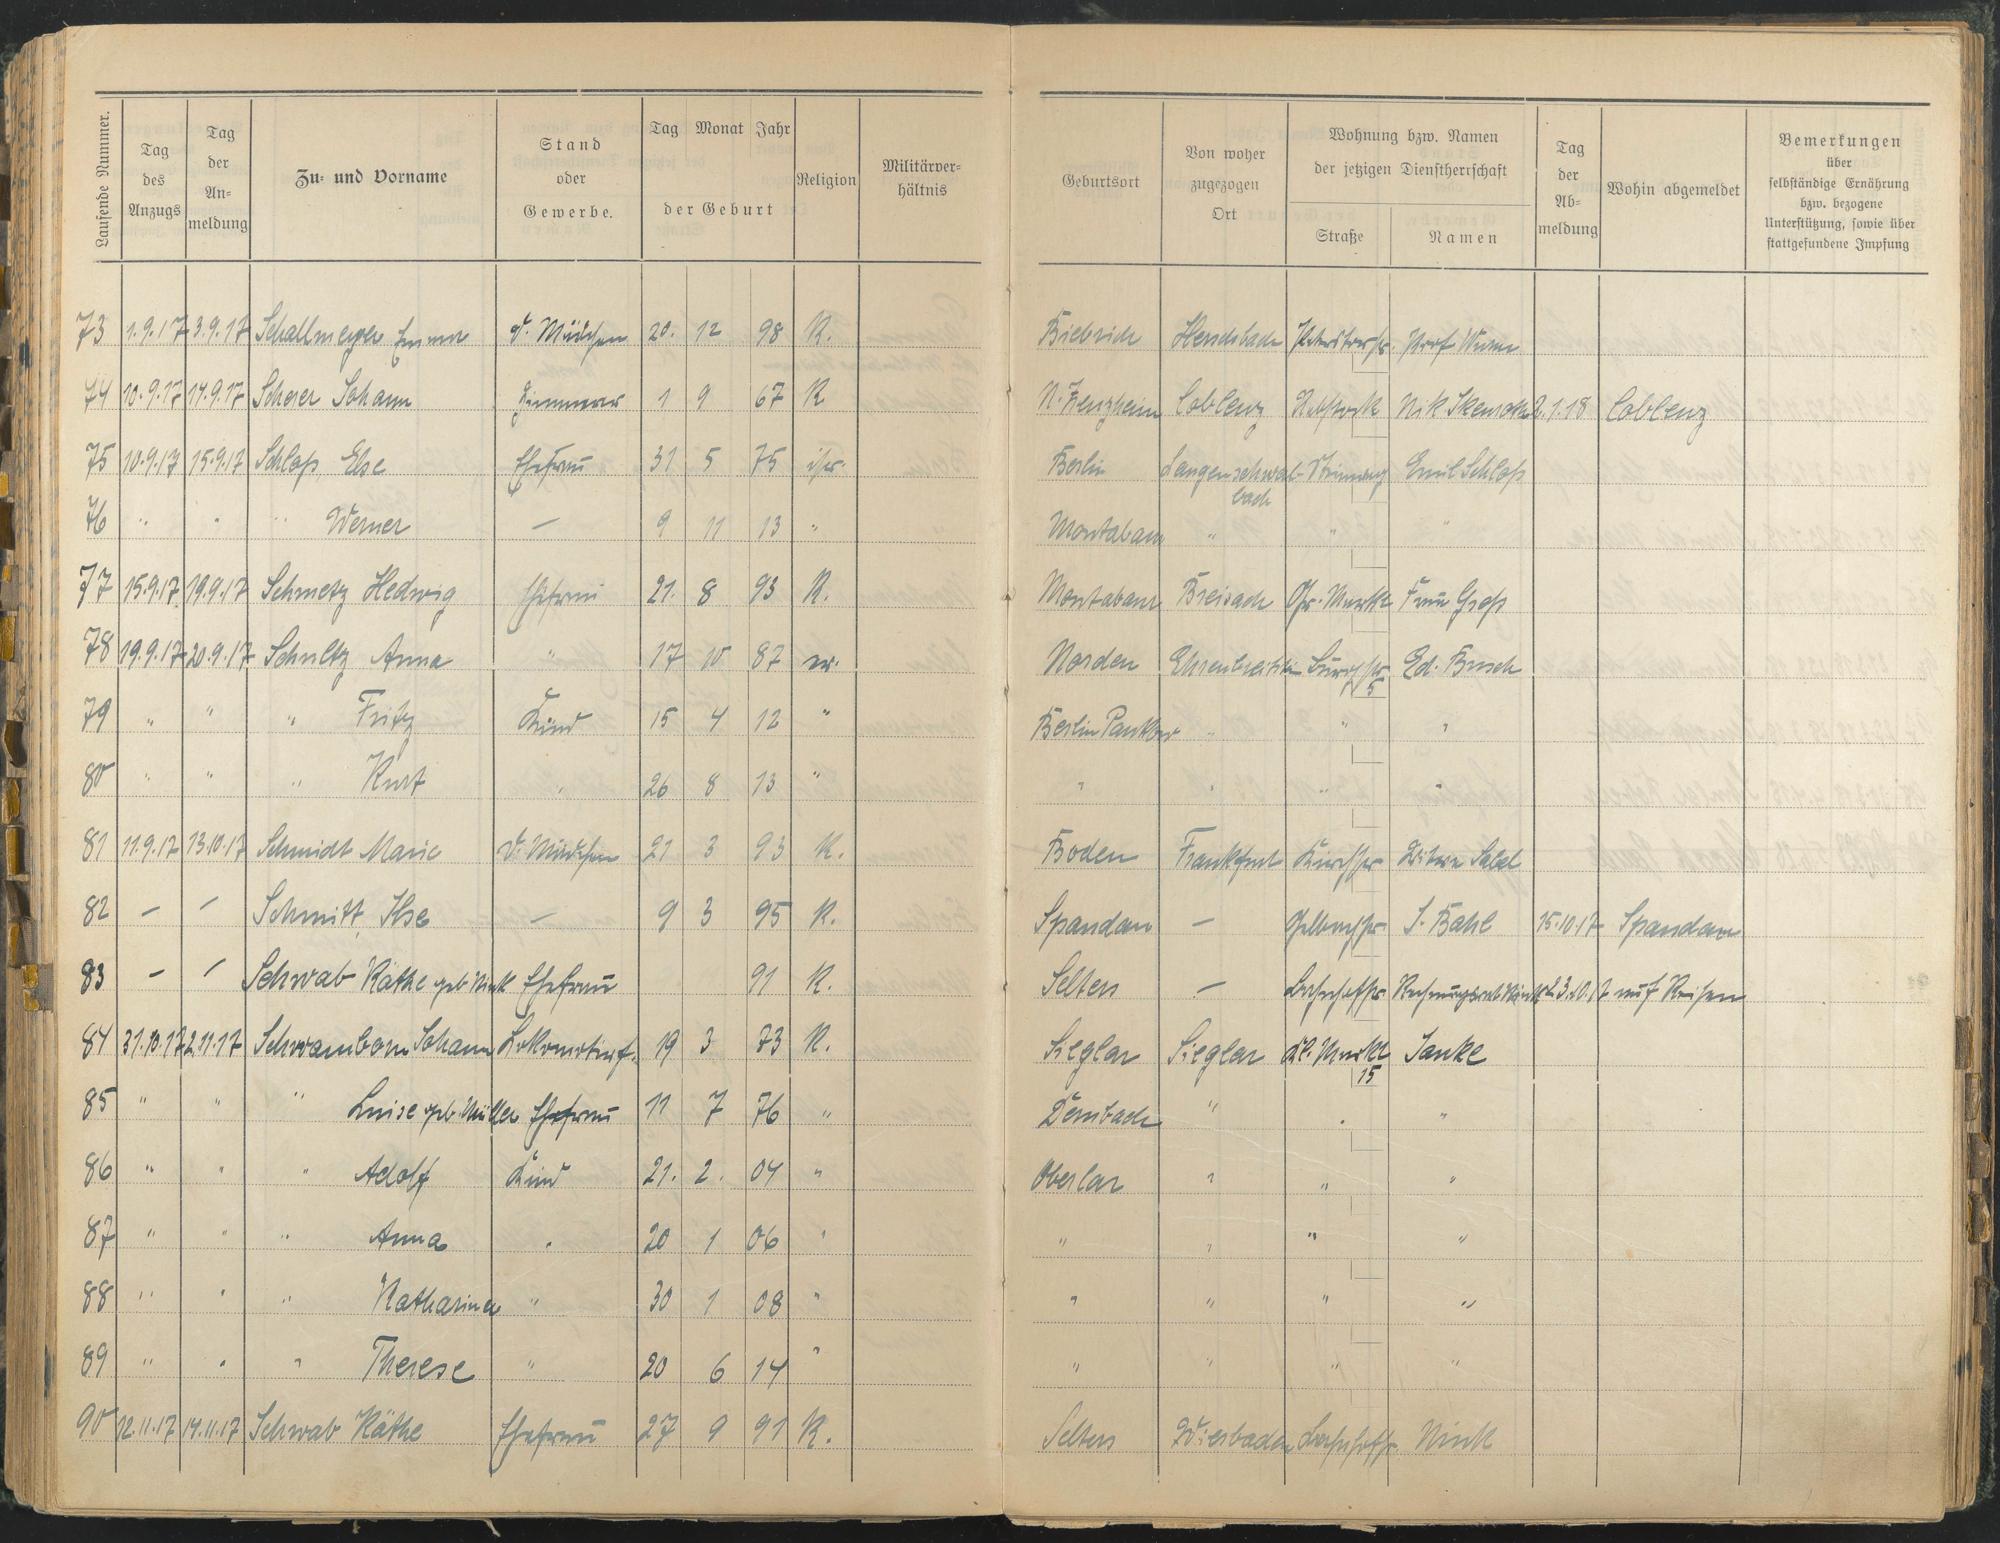 Laufende Nummer.
Tag des Anzugs
Tag der Anmeldung
Zu- und Vorname
Stand oder Gewerbe.
Tag Monat Jahr der Geburt
Religion
Militärverhältnis
Geburtsort
Von woher zugezogen Ort
Wohnung bzw. Namen der jetzigen Dienstherrschaft
Straße
Namen
Tag der Abmeldung
Wohin abgemeldet
Bemerkungen über selbständige Ernährung bzw. bezogene Unterstützung, sowie über stattgefundene Impfung
73 1.9.17 3.9.17 Schallmeyer Emma d. Mädchen 20. 12 98 K. Biebrich Prof Wurm
74 10.9.17 14.9.17 Scherer Johann 1 9 67 K Coblenz Rebstock Nik 2.1.18 Coblenz
75 10.9.17 15.9.17 Schloß, Else Ehefrau 31 5 75 isr. Berlin Langenschwalbach Steinweg Emil Schloß
76 " " " Werner — 9 11 13 " Montabaur " " "
77 15.9.17 19.9.17 Schmetz Hedwig Ehefrau 21. 8 93 K. Montabaur Breisach Gr. Markt Frau Groß
78 19.9.17 20.9.17 Schultz Anna " 17 10 87 ev. Norden Ehrenbreitstein Burgstr 5 Ed. Busch
79 " " " Fritz Kind 15 4 12 " Berlin Pankow " " "
80 " " " Kurt " 26 8 13 " " " " "
81 11.9.17 13.10.17 Schmidt Marie d. Mädchen 21 3 93 K. Boden Frankfurt Kirchstr Witwe Sabel
82 — — Schmitt, Ilse — 9 3 95 K. Spandau — Gelbachstr J. Bahl 15.10.17 Spandau
83 — — Schwab Käthe geb. Nink Ehefrau 91 K. Selters — Bahnhofstr Rechnungsrat Nink 23.10.17 auf Reisen
84 31.10.17 2.11.17 Schwamborn Johann Lokomotivf. 19 3 73 K. Sieglar Sieglar Kl. Markt 15 Janke
85 " " " Luise geb. Müller Ehefrau 11 7 76 " Dernbach " " "
86 " " " Adolf Kind 21. 2. 04 " Oberlar " " "
87 " " " Anna " 20 1 06 " " " " "
88 " " " Katharina " 30 1 08 " " " " "
89 " " " Therese " 20 6 14 " " " " "
90 12.11.17 14.11.17 Schwab Käthe Ehefrau 27 9 91 K. Selters Wiesbaden Bahnhofstr Nink